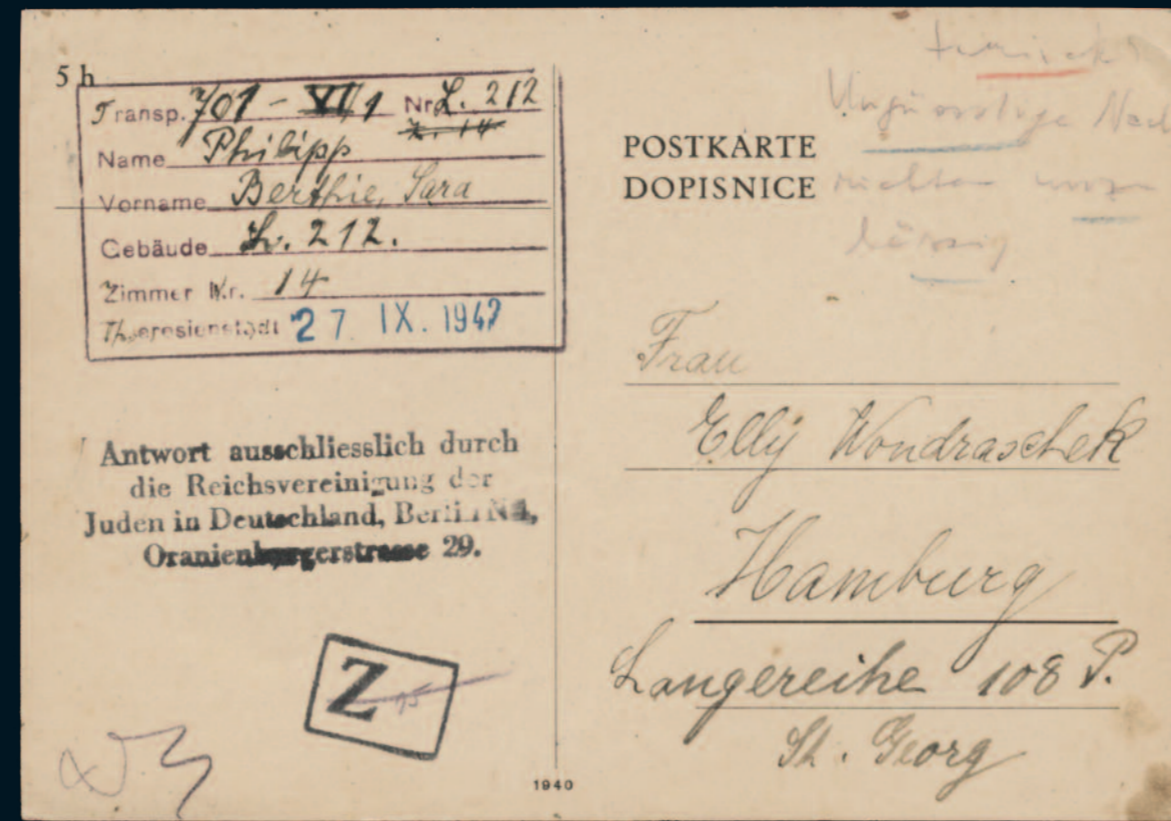 5 h
Transp. 701 - VI/1 Nr. L. 212
Z. 14
Name Philipp
Vorname Berthie, Sara
Gebäude L. 212.
Zimmer Nr. 14
Theresienstadt 27 IX. 1942
Antwort ausschliesslich durch
die Reichsvereinigung der
Juden in Deutschland, Berlin N 4,
Oranienburgerstrasse 29.
Z
1940
zurück
POSTKARTE
DOPISNICE
Frau
Elly Wondraschek
Hamburg
Langereihe 108 P.
St. Georg